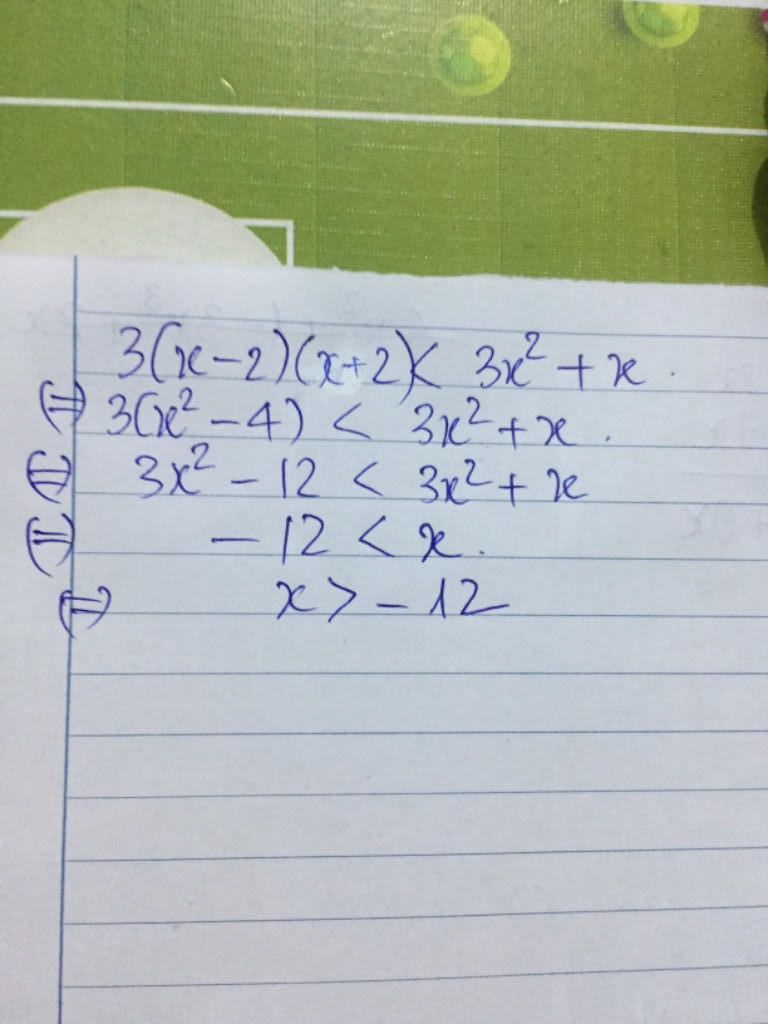 3(x-2)(x+2)< 3x² + x.
(=) 3(x² - 4) < 3x² + x.
(=) 3x² - 12 < 3x² + x
(=) - 12 < x.
(=) x > - 12